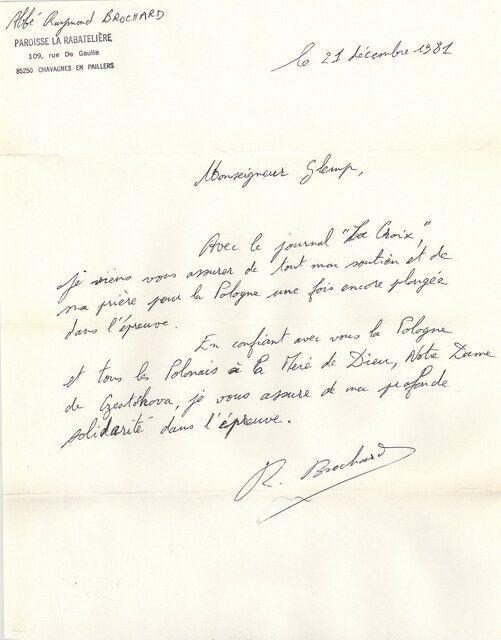 Abbé Raymond BROCHARD
PAROISSE LA RABATELIÈRE
109, rue De Gaulle
85250 CHAVAGNES EN PAILLERS
le 21 décembre 1981
Monseigneur Glemp,
Avec le journal "La Croix",
je viens vous assurer de tout mon soutien et de
ma prière pour la Pologne une fois encore plongée
dans l'épreuve.
En confiant avec vous la Pologne
et tous les Polonais à la Meré de Dieu, Notre Dame
de Czestokova, je vous assure de ma profonde
solidarité dans l'épreuve.
R. Brochard